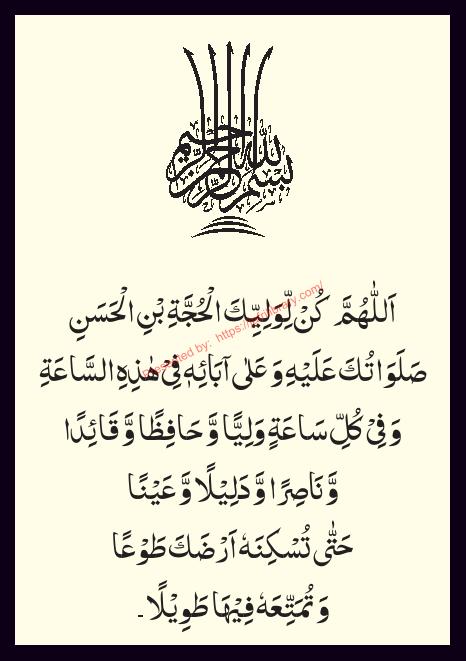 بسم الله الرحمن الرحيم
اَللّٰهُمَّ كُنْ لِّوَلِيِّكَ الْحُجَّةِ بْنِ الْحَسَنِ
صَلَوَاتُكَ عَلَيْهِ وَعَلٰى آبَائِهٖ فِيْ هٰذِهِ السَّاعَةِ
وَفِيْ كُلِّ سَاعَةٍ وَلِيًّا وَّحَافِظًا وَّقَائِدًا
وَّنَاصِرًا وَّدَلِيْلًا وَّعَيْنًا
حَتّٰى تُسْكِنَهٗ اَرْضَكَ طَوْعًا
وَتُمَتِّعَهٗ فِيْهَا طَوِيْلًا۔